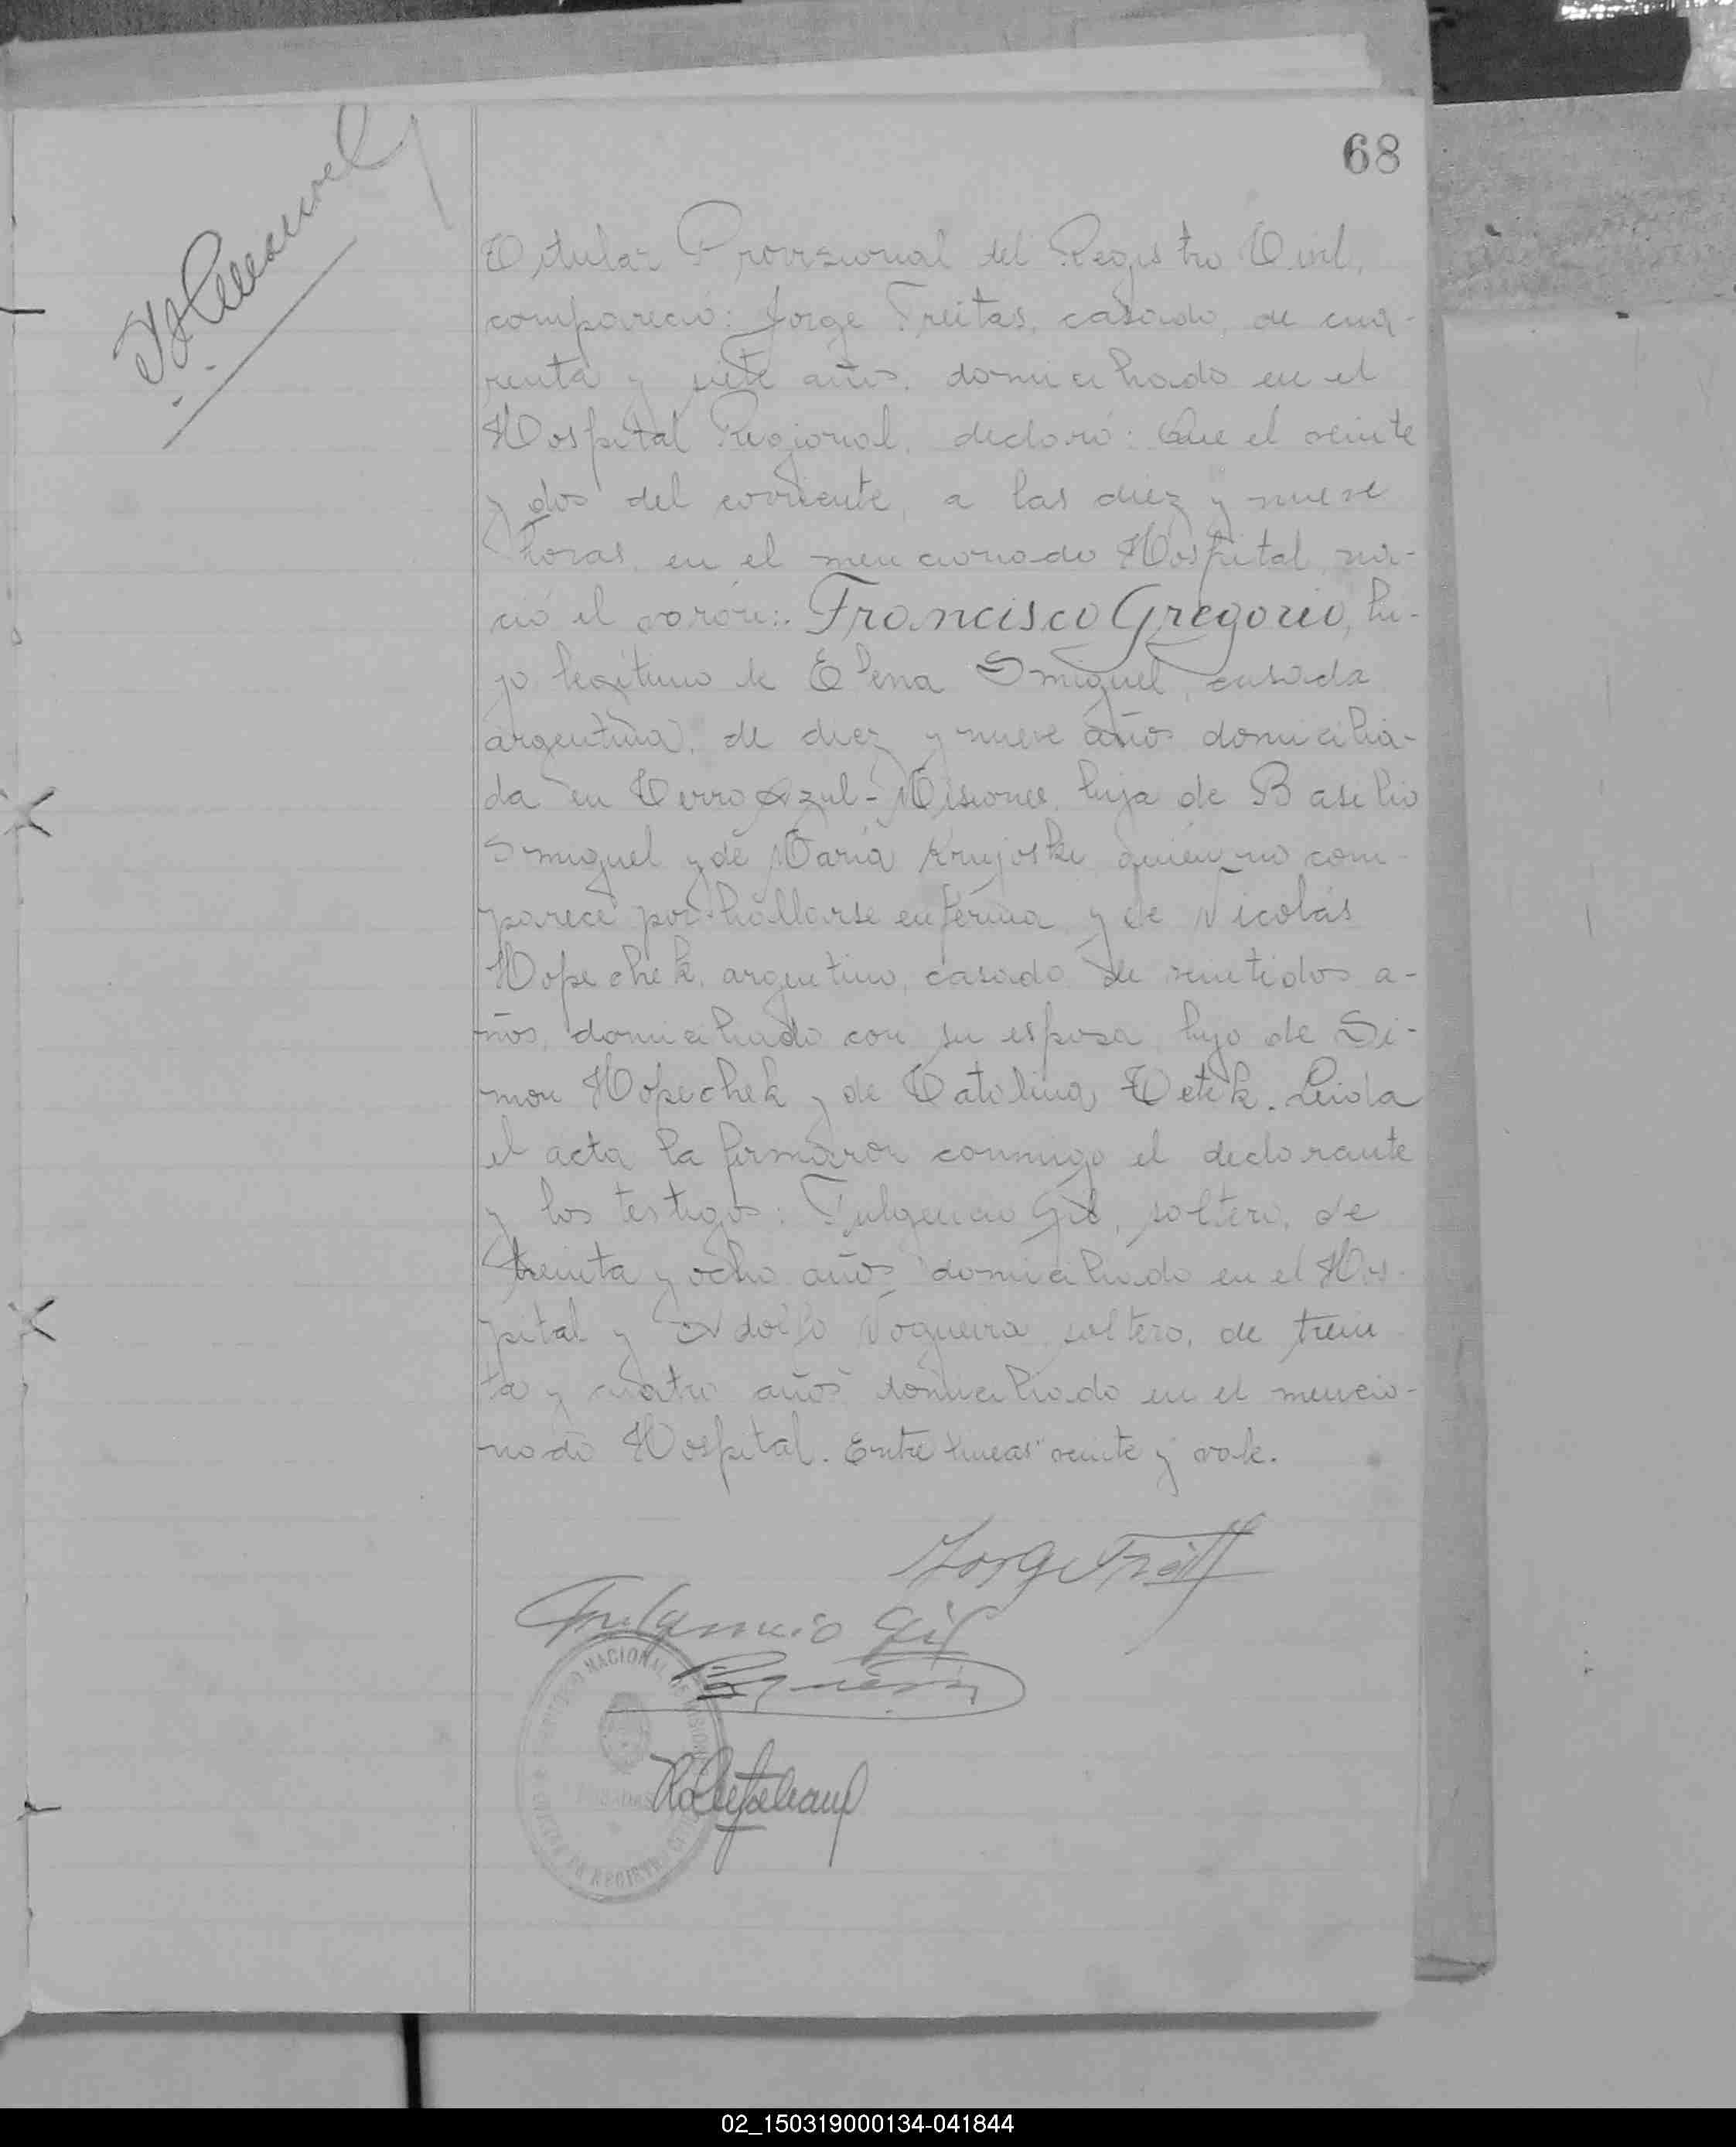 68
Titular Provisional del Registro Civil,
compareció: Jorge Freitas, casado, de cua-
renta y siete años, domiciliado en el
Hospital Regional, declaró: Que el veinte
y dos del corriente, a las diez y nueve
horas, en el mencionado Hospital, na-
ció el varón: Francisco Gregorio, hi-
jo legítimo de Elena Smiguel, casada
argentina, de diez y nueve años domicilia-
da en Cerro Azul-Misiones, hija de Basilio
Smiguel y de María Krujoski quién no com-
parece por hallarse enferma y de Nicolás
Hopechek, argentino, casado de veintidos a-
ños, domiciliado con su esposa, hijo de Si-
mon Hopechek y de Catalina Tetek. Leida
el acta la firmaron conmigo el declarante
y los testigos: Fulgencio Gil, soltero, de
treinta y ocho años domiciliado en el Hos-
pital y Adolfo Nogueira soltero, de trein
ta y cuatro años domiciliado en el mencio-
nado Hospital. Entre lineas "veinte y vale.
Jorge Freit
Fulgencio Gil
NACIONAL DE MISIONES
POSADAS